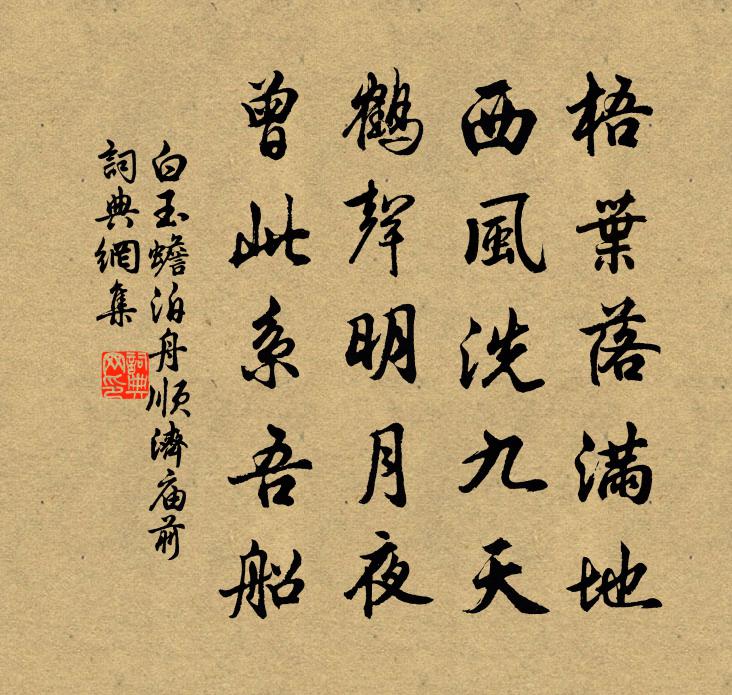 梧葉落满地
西風洗九天
鶴聲明月夜
曾此系吾船
白玉蟾泊舟順濟庙前
詞典網集
詞典网印